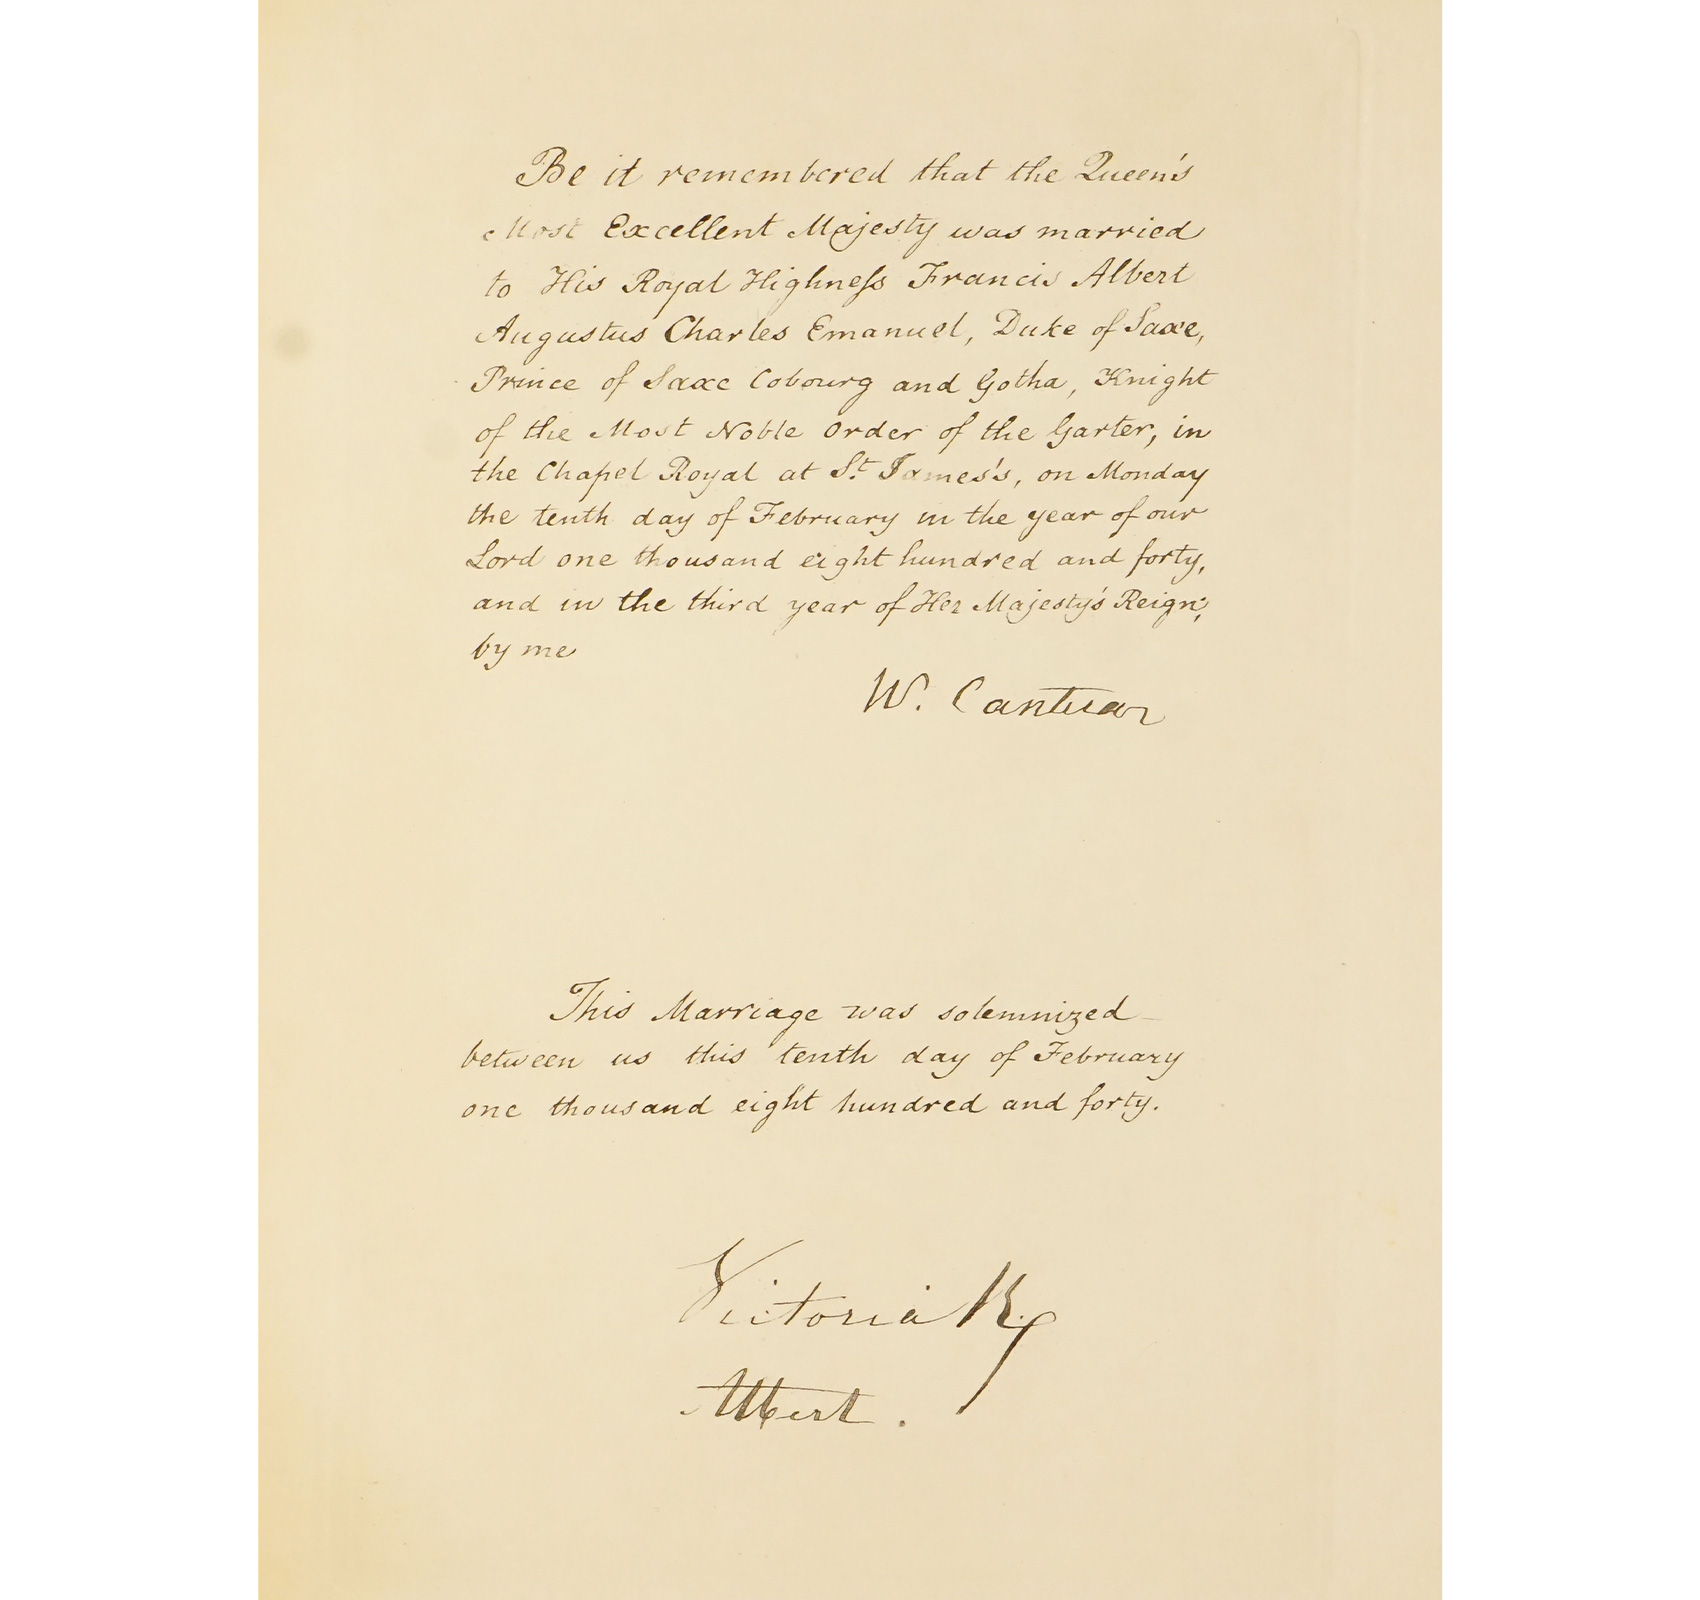 Be it remembered that the Queen's
Most Excellent Majesty was married
to His Royal Highneſs Francis Albert
Augustus Charles Emanuel, Duke of Saxe,
Prince of Saxe Cobourg and Gotha, Knight
of the Most Noble Order of the Garter, in
the Chapel Royal at St. James's, on Monday
the tenth day of February in the year of our
Lord one thousand eight hundred and forty,
and in the third year of Her Majesty's Reign;
by me
W. Cantuar
This Marriage was solemnized
between us this tenth day of February
one thousand eight hundred and forty.
Victoria R
Albert.